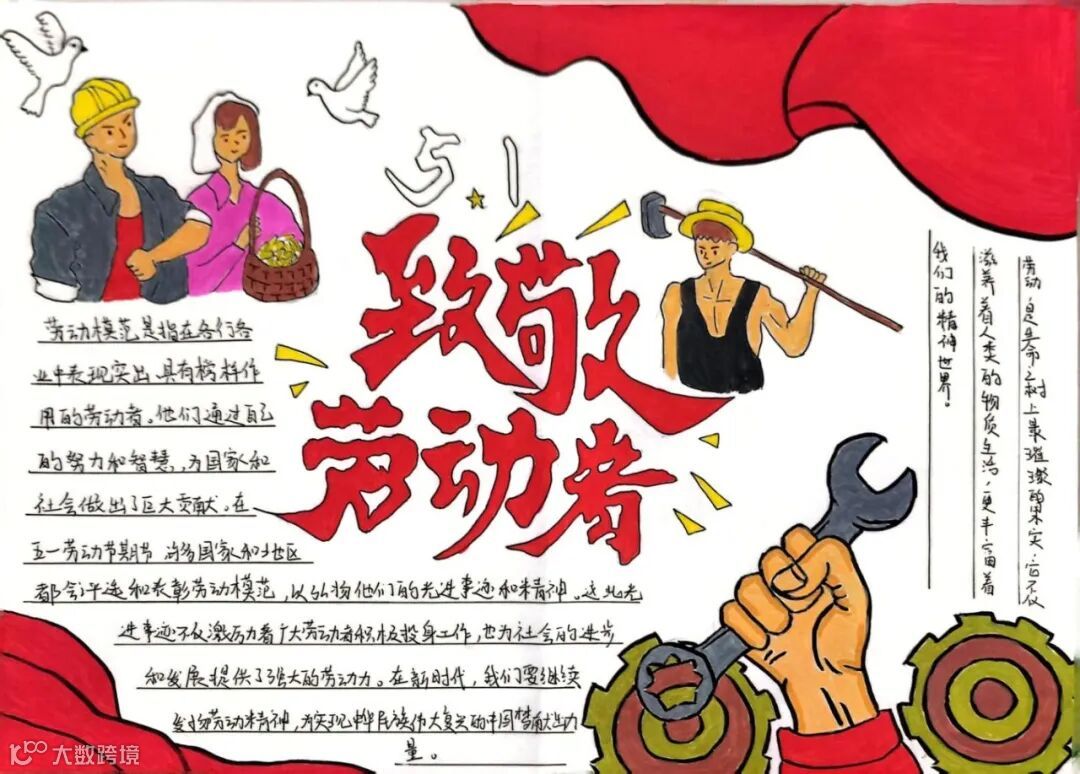 51
致敬
劳动者
劳动模范是指在各行各
业中表现突出、具有榜样作
用的劳动者。他们通过自己
的努力和智慧,为国家和
社会做出了巨大贡献。在
五一劳动节期节 许多国家和地区
都会评选和表彰劳动模范,以弘扬他们的先进事迹和精神。这些先
进事迹不仅激励着广大劳动者积极投身工作,也为社会的进步
和发展提供了强大的劳动力。在新时代,我们要继续
发扬劳动精神,为实现中华民族伟大复兴的中国梦献出力
量。
劳动,是生命之树上最璀璨的果实,它不仅
滋养着人类的物质生活,更丰富着
我们的精神世界。
大数跨境